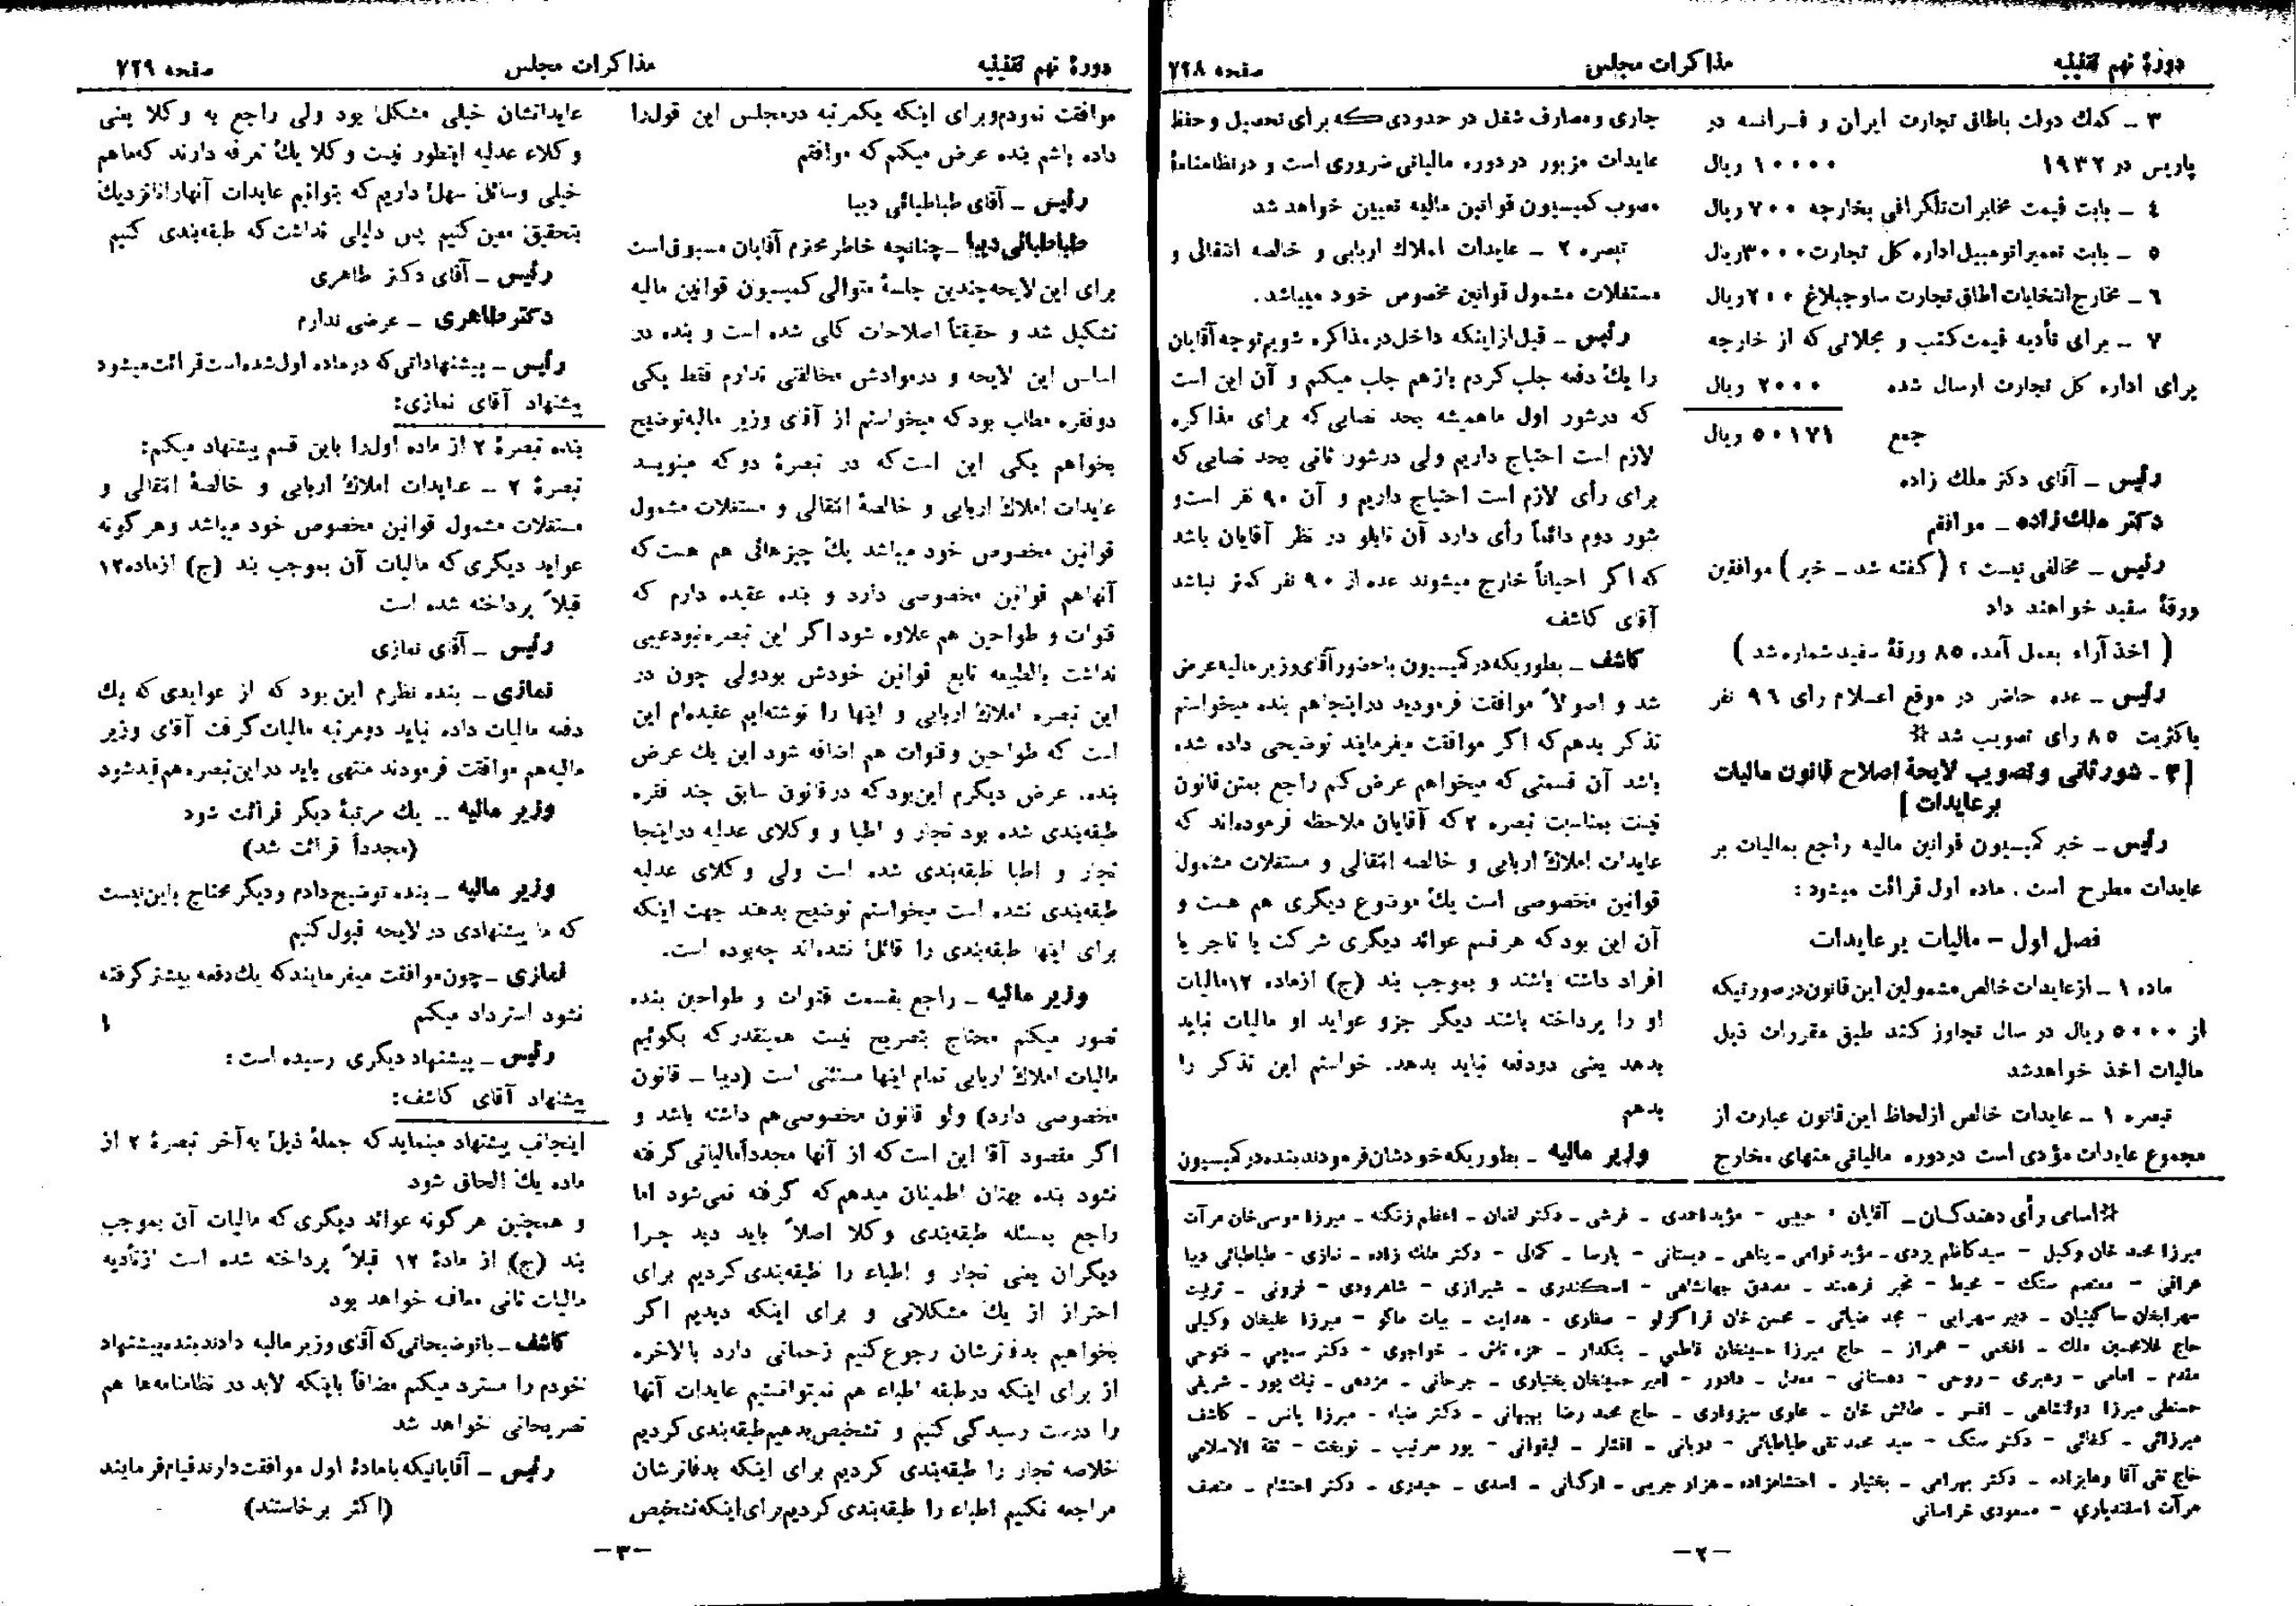 دورهٔ نهم تقنینیه
مذاکرات مجلس
صفحه ۷۲۸
۳ ـ کمك دولت باطاق تجارت ایران و فرانسه در
پاریس در ۱۹۳۲ ۱۰۰۰۰ ریال
٤ ـ بابت قیمت مخابرات تلگرافی بخارجه ۷۰۰ ریال
٥ ـ بابت تعمیر اتومبیل اداره کل تجارت ۳۰۰۰ ریال
٦ ـ مخارج انتخابات اطاق تجارت ساوجبلاغ ۲۰۰ ریال
۷ ـ برای تأدیه قیمت کتب و مجلاتی که از خارجه
برای اداره کل تجارت ارسال شده ۲۰۰۰ ریال
جمع ٥۰۱۷۱ ریال
رئیس ـ آقای دکتر ملك زاده
دکتر ملك زاده ـ موافقم
رئیس ـ مخالفی نیست ؟ (گفته شد ـ خیر) موافقین
ورقهٔ سفید خواهند داد
( اخذ آراء بعمل آمده ۸٥ ورقهٔ سفید شماره شد )
رئیس ـ عده حاضر در موقع اعلام رأی ۹٦ نفر
باکثریت ۸٥ رأی تصویب شد *
[ ۳ ـ شور ثانی و تصویب لایحهٔ اصلاح قانون مالیات
بر عایدات ]
رئیس ـ خبر کمیسیون قوانین مالیه راجع بمالیات بر
عایدات مطرح است . ماده اول قرائت میشود :
فصل اول – مالیات بر عایدات
ماده ۱ ـ از عایدات خالص مشمولین این قانون در صورتیکه
از ٥۰۰۰ ریال در سال تجاوز کند طبق مقررات ذیل
مالیات اخذ خواهد شد
تبصره ۱ ـ عایدات خالص از لحاظ این قانون عبارت از
مجموع عایدات مؤدی است در دوره مالیاتی منهای مخارج
جاری و مصارف شغل در حدودی که برای تحصیل و حفظ
عایدات مزبور در دوره مالیاتی ضروری است و در نظامنامهٔ
مصوب کمیسیون قوانین مالیه تعیین خواهد شد
تبصره ۲ ـ عایدات املاك اربابی و خالصه انتقالی و
مستغلات مشمول قوانین مخصوص خود میباشد .
رئیس ـ قبل از اینکه داخل در مذاکره شویم توجه آقایان
را یك دفعه جلب کردم باز هم جلب میکنم و آن این است
که در شور اول ما همیشه بحد نصابی که برای مذاکره
لازم است احتیاج داریم ولی در شور ثانی بحد نصابی که
برای رأی لازم است احتیاج داریم و آن ۹۰ نفر است و
شور دوم دائماً رأی دارد آن تابلو در نظر آقایان باشد
که اگر احیاناً خارج میشوند عده از ۹۰ نفر کمتر نباشد
آقای کاشف
کاشف ـ بطوریکه در کمیسیون با حضور آقای وزیر مالیه عرض
شد و اصولاً موافقت فرمودید در اینجا هم بنده میخواستم
تذکر بدهم که اگر موافقت میفرمایند توضیحی داده شده
باشد آن قسمتی که میخواهم عرض کنم راجع بمتن قانون
نیست بمناسبت تبصره ۲ که آقایان ملاحظه فرموده‌اند که
عایدات املاك اربابی و خالصه انتقالی و مستغلات مشمول
قوانین مخصوصی است یك موضوع دیگری هم هست و
آن این بود که هر قسم عوائد دیگری شرکت یا تاجر یا
افراد داشته باشند و بموجب بند (ج) از ماده ۱۲ مالیات
او را پرداخته باشند دیگر جزو عواید او مالیات نباید
بدهد یعنی دو دفعه نباید بدهد . خواستم این تذکر را
بدهم
وزیر مالیه ـ بطوریکه خودشان فرمودند بنده در کمیسیون
*اسامی رأی دهندگان ـ آقایان : حبیبی – مؤید احمدی ـ فرشی ـ دکتر لقمان ـ اعظم زنگنه ـ میرزا موسی خان مرآت
میرزا محمد خان وکیل – سید کاظم یزدی ـ مؤید قوامی ـ پناهی ـ دبستانی – پارسا ـ کمالی – دکتر ملك زاده ـ نمازی – طباطبائی دیبا
عراقی – معتصم سنگ – محیط – مخبر فرهمند ـ مصدق جهانشاهی – اسکندری ـ شیرازی – شاهرودی – قزونی ـ تربیت
سهرابخان ساگینیان ـ دبیر سهرابی – مجد ضیائی ـ محسن خان قراگزلو – صفاری – هدایت ـ بیات ماکو – میرزا علیخان وکیلی
حاج غلامحسین ملك ـ افخمی – همراز ـ حاج میرزا حسینخان فاطمی ـ بنکدار ـ حمزه تاش ـ خواجوی – دکتر سمیعی ـ فتوحی
مقدم ـ امامی – رهبری – روحی – دهستانی – معدل ـ دادور – امیر حسینخان بختیاری ـ جرجانی ـ مژدهی ـ نیك پور ـ شریفی
حسنعلی میرزا دولتشاهی ـ افسر ـ طالش خان ـ علوی سبزواری ـ حاج محمد رضا بهبهانی ـ دکتر ضیاء – میرزا یانس ـ کاشف
میرزائی ـ کفائی – دکتر سنگ – سید محمد تقی طباطبائی – دربانی ـ افشار ـ لیقوانی – پور سرتیپ ـ نوبخت – ثقة الاسلامی
حاج تقی آقا وهابزاده ـ دکتر بهرامی ـ بختیار ـ احتشامزاده ـ هزار جریبی ـ ارگانی ـ اسدی ـ حیدری ـ دکتر احتشام ـ منصف
مرآت اسفندیاری – مسعودی خراسانی
–۲–
دورهٔ نهم تقنینیه
مذاکرات مجلس
صفحه ۷۲۹
موافقت نمودم و برای اینکه یکمرتبه در مجلس این قول را
داده باشم بنده عرض میکنم که موافقم
رئیس ـ آقای طباطبائی دیبا
طباطبائی دیبا ـ چنانچه خاطر محترم آقایان مسبوق است
برای این لایحه چندین جلسهٔ متوالی کمیسیون قوانین مالیه
تشکیل شد و حقیقتاً اصلاحات کلی شده است و بنده در
اساس این لایحه و در موادش مخالفتی ندارم فقط یکی
دو فقره مطلب بود که میخواستم از آقای وزیر مالیه توضیح
بخواهم یکی این است که در تبصرهٔ دو که مینویسد
عایدات املاك اربابی و خالصهٔ انتقالی و مستغلات مشمول
قوانین مخصوص خود میباشد یك چیزهائی هم هست که
آنها هم قوانین مخصوصی دارد و بنده عقیده دارم که
قنوات و طواحین هم علاوه شود اگر این تبصره نبود عیبی
نداشت بالطبیعه تابع قوانین خودش بود ولی چون در
این تبصره املاك اربابی و اینها را نوشته‌ایم عقیده‌ام این
است که طواحین و قنوات هم اضافه شود این یك عرض
بنده . عرض دیگرم این بود که در قانون سابق چند فقره
طبقه‌بندی شده بود تجار و اطبا و وکلای عدلیه در اینجا
تجار و اطبا طبقه‌بندی شده است ولی وکلای عدلیه
طبقه‌بندی نشده است میخواستم توضیح بدهند جهت اینکه
برای اینها طبقه‌بندی را قائل نشده‌اند چه بوده است.
وزیر مالیه ـ راجع بقسمت قنوات و طواحین بنده
تصور میکنم محتاج بتصریح نیست همینقدر که بگوئیم
مالیات املاك اربابی تمام اینها مستثنی است (دیبا ـ قانون
مخصوصی دارد) ولو قانون مخصوصی هم داشته باشد و
اگر مقصود آقا این است که از آنها مجدداً مالیاتی گرفته
نشود بنده بهتان اطمینان میدهم که گرفته نمی‌شود اما
راجع بمسئله طبقه‌بندی وکلا اصلاً باید دید چرا
دیگران یعنی تجار و اطباء را طبقه‌بندی کردیم برای
احتراز از یك مشکلاتی و برای اینکه دیدیم اگر
بخواهیم بدفترشان رجوع کنیم زحماتی دارد بالاخره
از برای اینکه در طبقه اطباء هم نمیتوانستیم عایدات آنها
را درست رسیدگی کنیم و تشخیص بدهیم طبقه‌بندی کردیم
خلاصه تجار را طبقه‌بندی کردیم برای اینکه بدفاترشان
مراجعه نکنیم اطباء را طبقه‌بندی کردیم برای اینکه تشخیص
عایداتشان خیلی مشکل بود ولی راجع به وکلا یعنی
وکلاء عدلیه اینطور نیست وکلا یك تعرفه دارند که ما هم
خیلی وسائل سهل داریم که بتوانیم عایدات آنها را تا نزدیك
بتحقیق معین کنیم پس دلیلی نداشت که طبقه‌بندی کنیم
رئیس ـ آقای دکتر طاهری
دکتر طاهری ـ عرضی ندارم
رئیس ـ پیشنهاداتی که در ماده اول شده است قرائت میشود
پیشنهاد آقای نمازی:
بنده تبصرهٔ ۲ از ماده اول را باین قسم پیشنهاد میکنم:
تبصرهٔ ۲ ـ عایدات املاك اربابی و خالصهٔ انتقالی و
مستغلات مشمول قوانین مخصوص خود میباشد و هر گونه
عواید دیگری که مالیات آن بموجب بند (ج) از ماده ۱۲
قبلاً پرداخته شده است
رئیس ـ آقای نمازی
نمازی ـ بنده نظرم این بود که از عوایدی که یك
دفعه مالیات داده نباید دو مرتبه مالیات گرفت آقای وزیر
مالیه هم موافقت فرمودند منتهی باید در این تبصره هم قید شود
وزیر مالیه ـ یك مرتبهٔ دیگر قرائت شود
(مجدداً قرائت شد)
وزیر مالیه ـ بنده توضیح دادم و دیگر محتاج باین نیست
که ما پیشنهادی در لایحه قبول کنیم
نمازی ـ چون موافقت میفرمایند که یك دفعه بیشتر گرفته
نشود استرداد میکنم
رئیس ـ پیشنهاد دیگری رسیده است :
پیشنهاد آقای کاشف:
اینجانب پیشنهاد مینماید که جملهٔ ذیل به آخر تبصرهٔ ۲ از
ماده یك الحاق شود
و همچنین هر گونه عوائد دیگری که مالیات آن بموجب
بند (ج) از مادهٔ ۱۲ قبلاً پرداخته شده است از تأدیه
مالیات ثانی معاف خواهد بود
کاشف ـ با توضیحاتی که آقای وزیر مالیه دادند بنده پیشنهاد
خودم را مسترد میکنم مضافاً باینکه لابد در نظامنامه‌ها هم
تصریحاتی خواهد شد
رئیس ـ آقایانیکه با مادهٔ اول موافقت دارند قیام فرمایند
(اکثر برخاستند)
–۳–